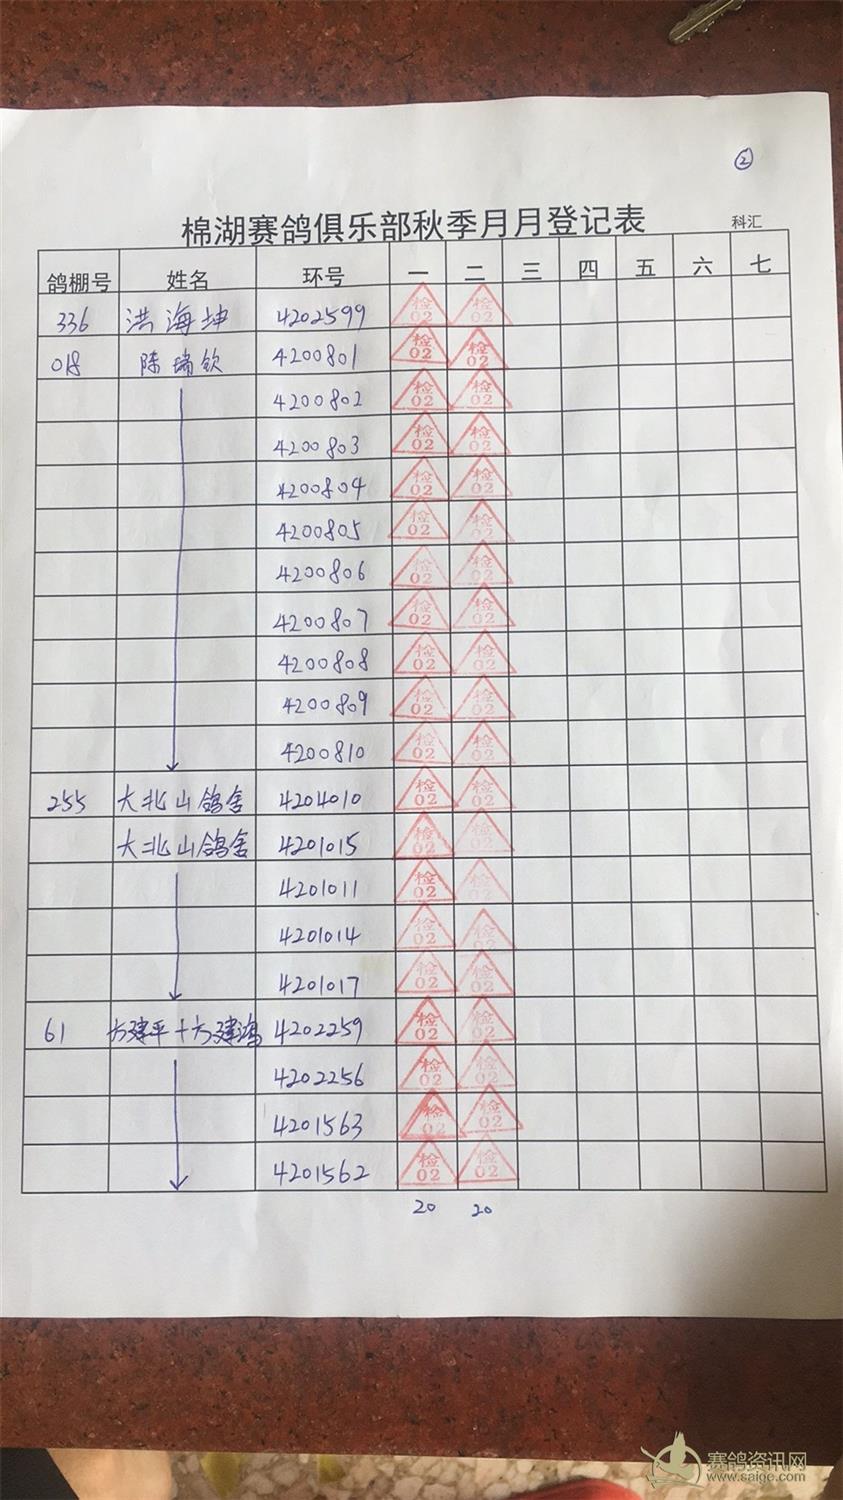 ②
棉湖赛鸽俱乐部秋季月月登记表 科汇
鸽棚号 姓名 环号 一 二 三 四 五 六 七
336 洪海坤 4202599 检02 检02
018 陈瑞钦 4200801 检02 检02
4200802 检02 检02
4200803 检02 检02
4200804 检02 检02
4200805 检02 检02
4200806 检02 检02
4200807 检02 检02
4200808 检02 检02
4200809 检02 检02
4200810 检02 检02
255 大北山鸽舍 4204010 检02 检02
大北山鸽舍 4201015 检02 检02
4201011 检02 检02
4201014 检02 检02
4201017 检02 检02
61 方建平+方建鸿 4202259 检02 检02
4202256 检02 检02
4201563 检02 检02
4201562 检02 检02
20 20
赛鸽资讯网
www.saige.com